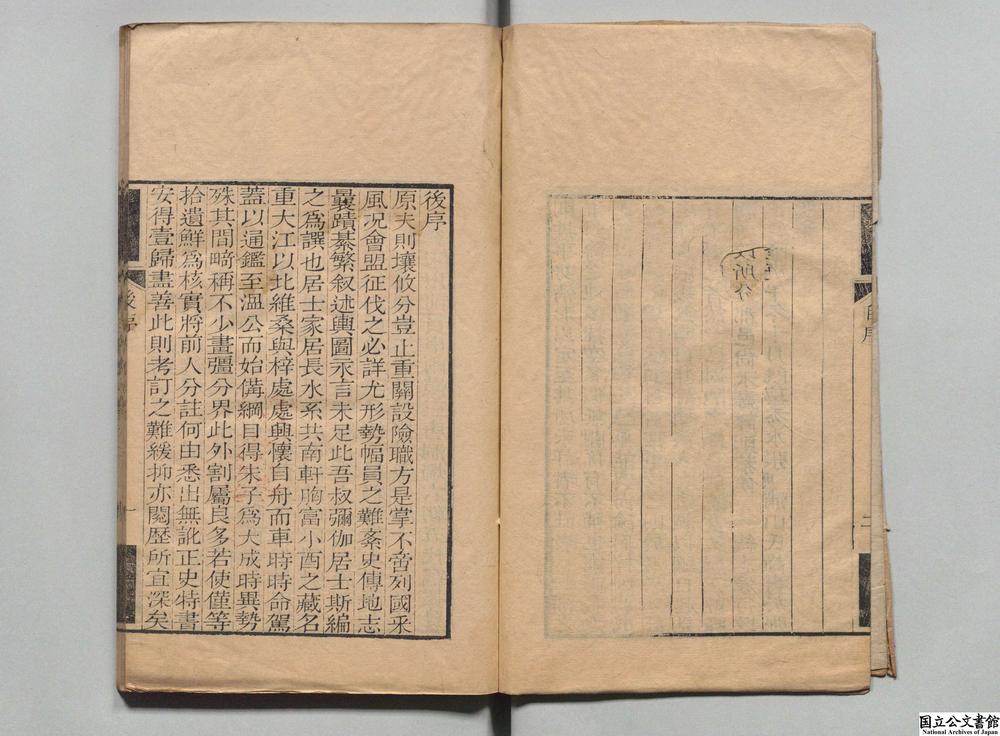 後序
原夫則壤攸分豈止重關設險職方是掌不啻列國釆
風况會盟征伐之必詳尤形勢幅員之難紊史傳地志
曩蹟綦繁叙述輿圖示言未足此吾叔彌伽居士斯編
之爲譔也居士家居長水系共南軒胸富小酉之藏名
重大江以北維桑與梓處處興懷自舟而車時時命駕
蓋以通鑑至溫公而始備綱目得朱子爲大成時異勢
殊其間略稱不少畫彊分界此外割屬良多若使僅等
拾遺鮮爲核實將前人分註何由悉出無訛正史特書
安得壹歸盡善此則考訂之難緩抑亦閱歷所宜深矣
後序
一
自序
二
国立公文書館
National Archives of Japan